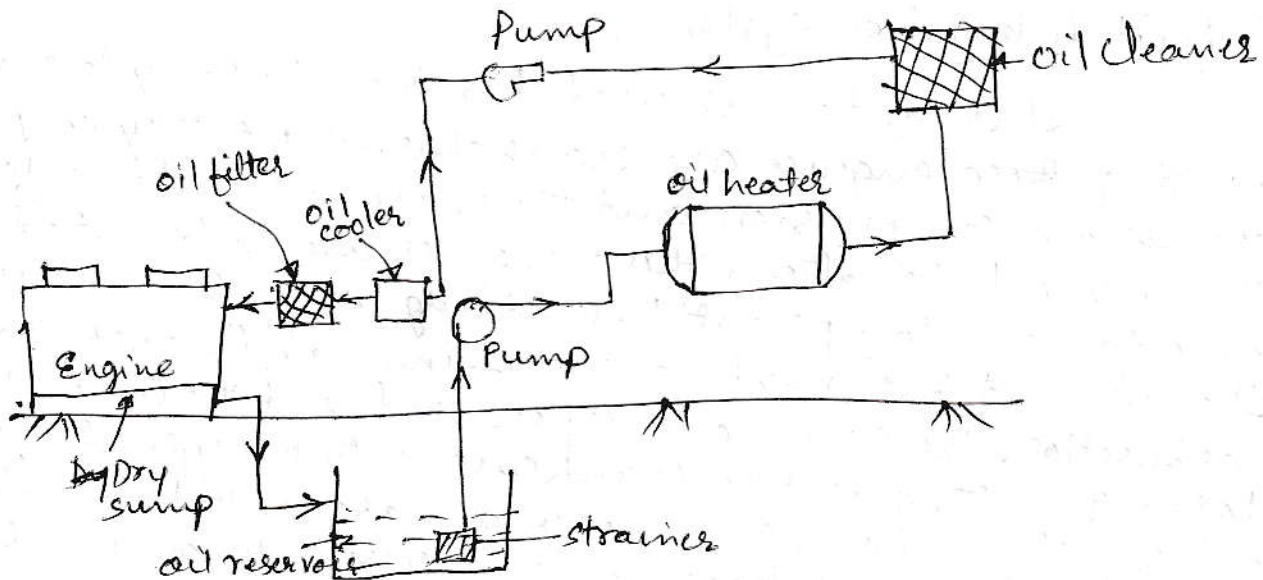 Pump
oil cleaner
oil filter
oil
cooler
oil heater
Engine
Pump
Dry
sump
oil reservoir
strainer